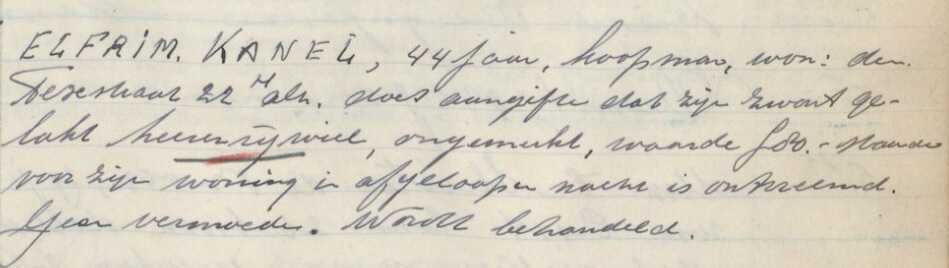 ELFRIM. KANEL, 44 jaar, koopman, won: den.
Texestraat 22 H alh. doet aangifte dat zijn zwart ge-
lakt heerenrijwiel, ongemerkt, waarde f 80.- staande
voor zijn woning in afgeloopen nacht is ontvreemd.
Geen vermoeden. Wordt behandeld.